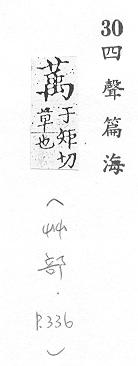 30四聲篇海
萭于矩切
草也
（艸部．P.336）